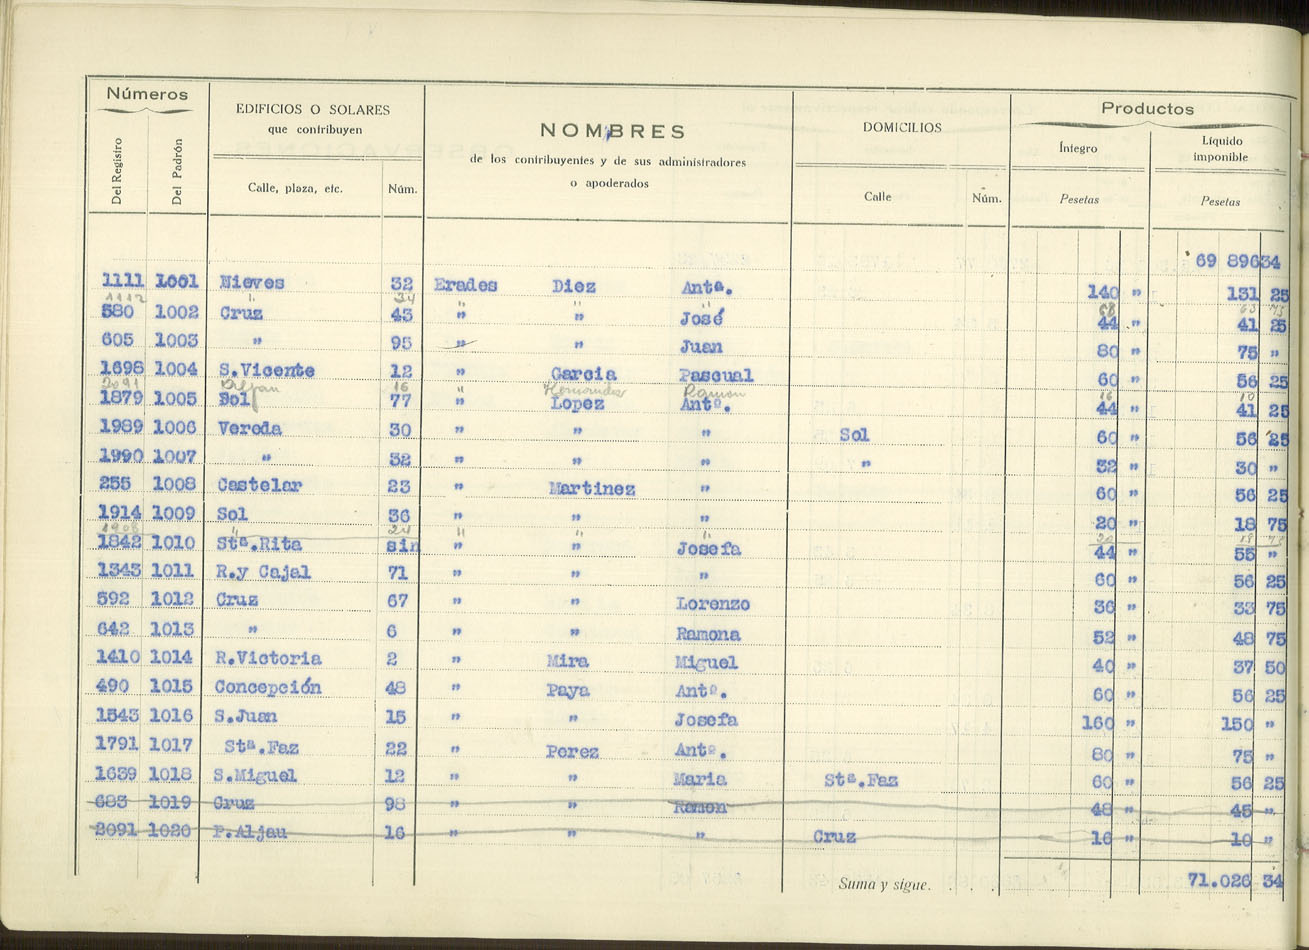 Números
EDIFICIOS O SOLARES
que contribuyen
NOMBRES
de los contribuyentes y de sus administradores
o apoderados
DOMICILIOS
Productos
Íntegro
Líquido imponible
Del Registro
Del Padrón
Calle, plaza, etc.
Núm.
Calle
Núm.
Pesetas
Pesetas
69 896 34
1111 1001 Nieves 32 Erades Diez Antª. 140 " 131 25
1112 " 34 " " " 68 63 75
580 1002 Cruz 43 " " José 44 " 41 25
605 1003 " 95 " " Juan 80 " 75 "
1698 1004 S.Vicente 12 " Garcia Pascual 60 " 56 25
2091 16 " Hernandez Ramon 16 10
1879 1005 Sol 77 " Lopez Antº. 44 " 41 25
1989 1006 Vereda 30 " " " Sol 60 " 56 25
1990 1007 " 32 " " " " 32 " 30 "
255 1008 Castelar 23 " Martinez " 60 " 56 25
1914 1009 Sol 36 " " " 20 " 18 75
1908 " 24 " " " 20 18 75
1842 1010 Stª.Rita sin " " Josefa 44 " 55 "
1343 1011 R.y Cajal 71 " " " 60 " 56 25
592 1012 Cruz 67 " " Lorenzo 36 " 33 75
642 1013 " 6 " " Ramona 52 " 48 75
1410 1014 R.Victoria 2 " Mira Miguel 40 " 37 50
490 1015 Concepción 48 " Paya Antº. 60 " 56 25
1543 1016 S.Juan 15 " " Josefa 160 " 150 "
1791 1017 Stª.Faz 22 " Perez Antº. 80 " 75 "
1639 1018 S.Miguel 12 " " Maria Stª.Faz 60 " 56 25
683 1019 Cruz 98 " " Ramon 48 " 45 "
2091 1020 P.Aljau 16 " " " Cruz 16 " 10 "
Suma y sigue. 71.026 34